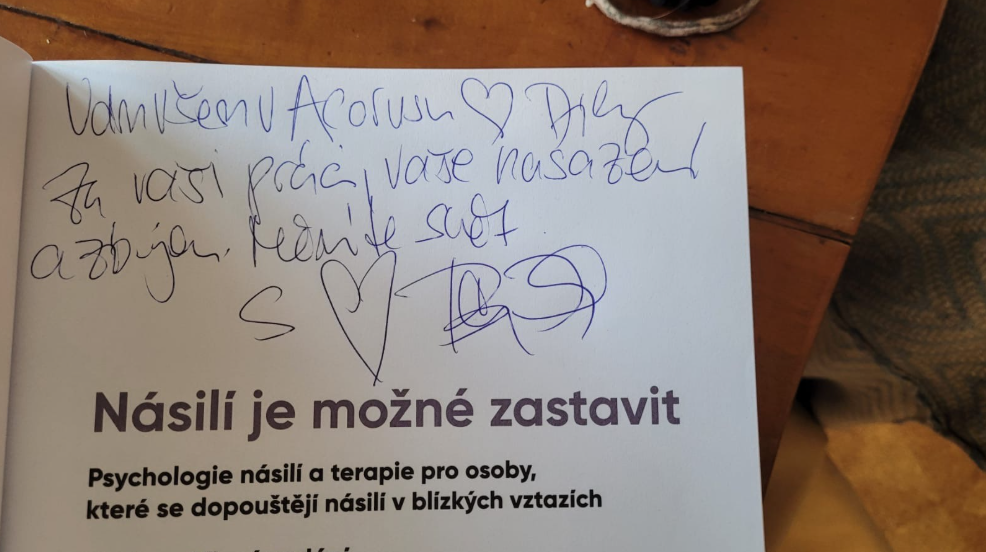 Vám všem v Acorusu ♡ Díky
za vaši práci, vaše nasazení
a zbyjen. Měníte svět
S ♡
Násilí je možné zastavit
Psychologie násilí a terapie pro osoby,
které se dopouštějí násilí v blízkých vztazích